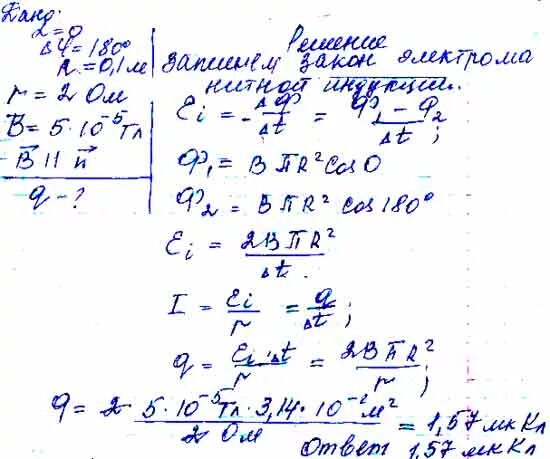 Дано:
α = 0
Δφ = 180°
R = 0,1 м
r = 2 Ом
B = 5·10⁻⁵ Тл
B⃗ || n⃗
q - ?
Решение
Запишем закон электрома
нитной индукции.
Ɛi = - ΔФ/Δt = (Ф₁ - Ф₂)/Δt ;
Ф₁ = BπR² cos 0
Ф₂ = BπR² cos 180°
Ɛi = 2BπR²/Δt .
I = Ɛi/r = q/Δt ;
q = Ɛi·Δt/r = 2BπR²/r ;
q = 2 5·10⁻⁵Тл·3,14·10⁻²м²/2 Ом = 1,57 мкКл
Ответ 1,57 мкКл